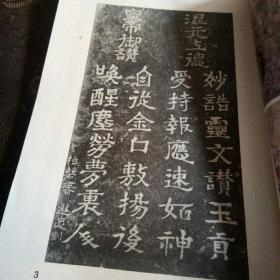 混元上德
皇帝御讃
妙誥靈文讃玉貢
受持報應速如神
自從金口敷揚後
喚醒塵勞夢裏人
3